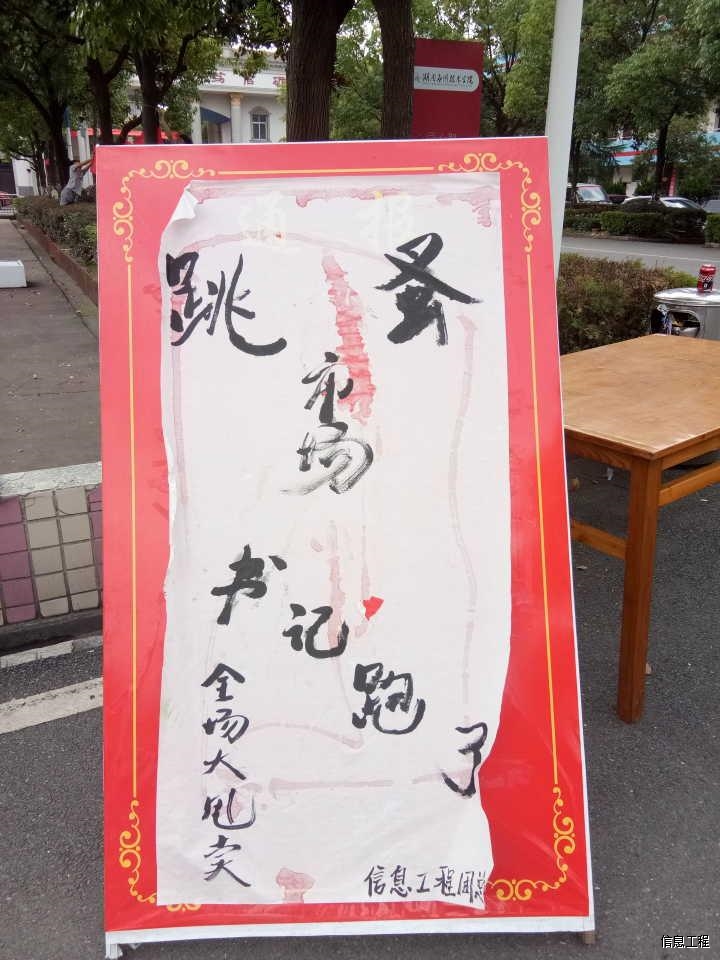 通报
跳蚤
市场
书记跑了
全场大甩卖
信息工程团总
信息工程